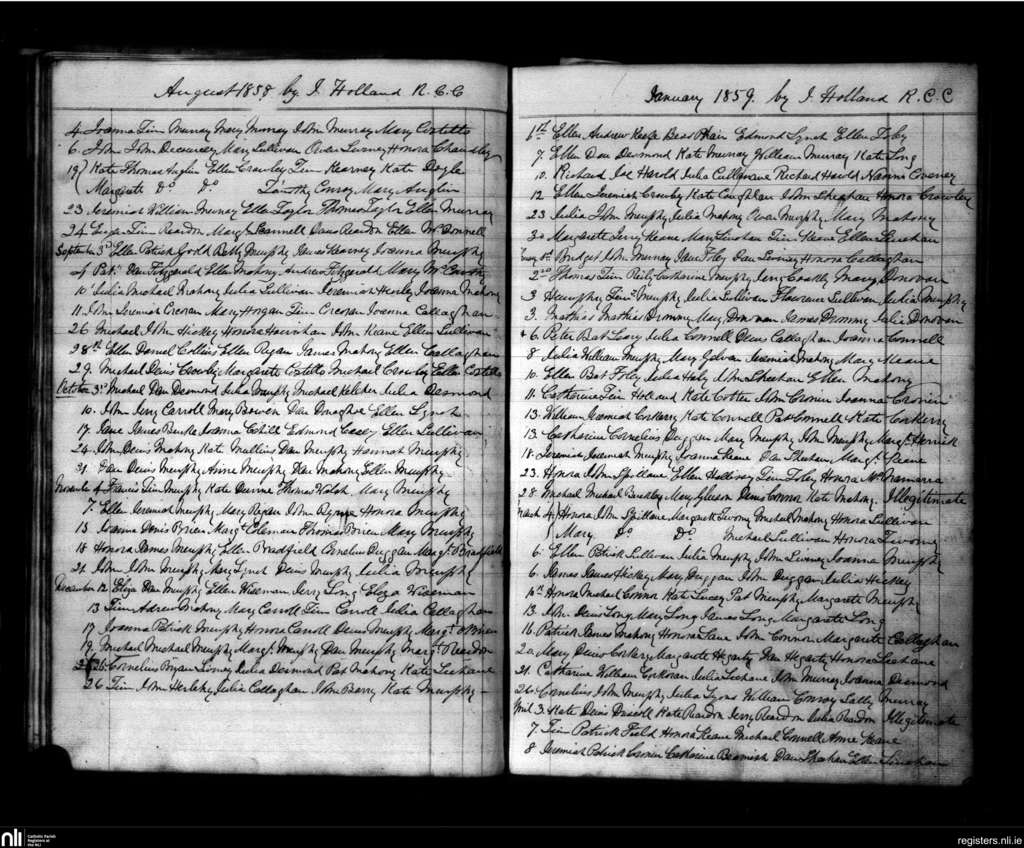 August 1858 by J. Holland R.C.C
4 Joanna Tim Murray Mary Murray John Murray Mary Costello
6 John John Decourcey Mary Sullivan Owen Turney Honora Chandley
19 Kate Thomas Anglin Ellen Crowley Tim Kearney Kate Doyle
Margrate Do Do Timothy Conroy Mary Anglin
23 Jeremiah William Murray Ellen Taylor Thomas Taylor Ellen Murray
24 Tim Reardon Margt Scannell Reardon Ellen McDonnell
September 3d Ellen Patrick Gold Betty Murphy James Kearney Joanna Murphy
Pat Dan Fitzgerald Ellen Mahony Andrew Fitzgerald Mary McCarthy
10 Julia Michael Mahony Julia Sullivan Jeremiah Herley Joanna Mahony
11 John Jeremiah Creoran Mary Horgan Tim Creoran Joanna Callaghan
26 Michael John Hickey Honora Hourihan John Keane Ellen Sullivan
28th Ellen Daniel Collins Ellen Regan James Mahony Ellen Callaghan
29 Michael Denis Crowly Margarate Costello Michael Crowly Ellen Costello
October 3d Michael Dan Desmond Julia Murphy Michael Kelcher Julia Desmond
10 John Jerry Carroll Mary Bowen Dan Donoghoe Ellen Lynch
17 Jane James Burke Joanna Cahill Edmond Casey Ellen Sullivan
24 John Denis Mahony Kate Mullins Dan Murphy Hannah Murphy
31 Dan Denis Murphy Anne Murphy Dan Mahony Ellen Murphy
November 4 Francis Tim Murphy Kate Thomas Walsh Mary Murphy
7 Ellen Jeremiah Murphy Mary Regan John Regan Honora Murphy
13 Joanna Denis Brien Margt Coleman Thomas Brien Mary Murphy
18 Honora James Murphy Ellen Bradfield Cornelius Duggan Margt O'Bradfield
21 John John Murphy Mary Lynch Denis Murphy Julia Murphy
December 12 Eliza Dan Murphy Ellen Wiseman Jerry Long Eliza Wiseman
13 Tim Andrew Mahony Mary Carroll Tim Carroll Julia Callaghan
17 Joanna Patrick Murphy Honora Carroll Denis Murphy Margt O'Brien
19 Michael Michael Murphy Margt Murphy Dan Murphy Margt Reardon
26 Cornelius Bryan Julia Desmond Pat Mahony Kate Leehane
26 Tim John Herlehy Julia Callaghan John Barry Kate Murphy
January 1859. by J. Holland R.C.C
6th Ellen Andrew Keefe Bess Phair Edmond Lynch Ellen Foley
7 Ellen Dan Desmond Kate Murray William Murray Kate Long
10 Richard Joe Harold Julia Cullinane Richard Harold Naomi Coveney
12 Ellen Jeremiah Crowley Kate Coughlan John Sheehan Honora Crowley
23 Julia John Murphy Julia Mahony Owen Murphy Mary Mahony
30 Margarate Jerry Keane Mary Linehan Tim Keane Ellen Linehan
Bridget John Murray Jane Foley Dan Honora Callaghan
2nd Thomas Tim Reily Catharine Murphy Jerry Coakly Mary Donovan
3 Humphry Tim Murphy Julia Sullivan Florence Sullivan Julia Murphy
3 Mathias Mathias Drummy Mary Donovan James Drummy Julia Donovan
6 Peter Bat Leary Julia Connell Denis Callaghan Joanna Connell
8 Julia William Murphy Mary Galvan Jeremiah Mahony Mary Meane
10 Ellen Bat Foley Julia Haly John Sheehan Ellen Mahony
11 Catharine Tim Holland Kate Cotter John Cronin Joanna Cronin
13 William Jeremiah Corkery Kate Connell Pat Connell Kate Corkery
13 Catharine Cornelius Duggan Mary Murphy John Murphy Margt Herrick
18 Jeremiah Jeremiah Murphy Joanna Keane Dan Sheehan Margt Keane
23 Honora John Spillane Ellen Hallisey Tim Foley Honora McNamarra
28 Michael Michael Buckley Mary Gleeson Denis Connor Kate Mahony Illegitimate
March 4 Honora John Spillane Margarett Twomy Michael Mahony Honora Sullivan
Mary Do Do Michael Sullivan Honora Twomy
6 Ellen Patrick Sullivan Julia Murphy John Joanna Murphy
6 James James Hickey Mary Duggan John Duggan Julia Hickey
10th Honora Michael Connor Kate Lucey Pat Murphy Margarate Murphy
13 John Denis Long Mary Long James Long Margarate Long
16 Patrick James Mahony Honora Lane John Connor Margarate Callaghan
20 Mary Denis Corkery Margarate Hegarty Dan Hegarty Honora Leehane
21 Catharine William Corkoran Julia Leehane John Murray Joanna Desmond
26 Cornelius John Murphy Julia Lyons William Conroy Sally Murray
April 3 Kate Denis Driscoll Kate Reardon Jerry Reardon Julia Reardon Illegitimate
7 Tim Patrick Field Honora Keane Michael Connell Anne Keane
8 Jeremiah Patrick Cronin Catharine Beamish Dan Sheehan Ellen Linehan
nli Catholic Parish Registers at the NLI
registers.nli.ie